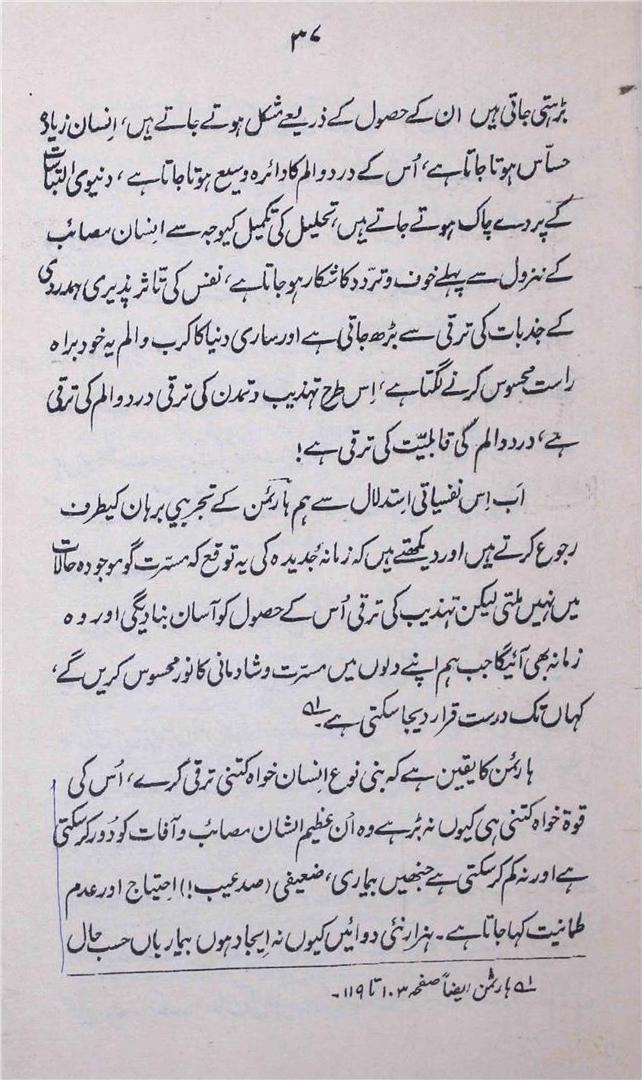 ۳۷
بڑھتی جاتی ہیں ان کے حصول کے ذریعے مشکل ہوتے جاتے ہیں، اِنسان زیادہ
حسّاس ہوتا جاتا ہے، اُس کے درد و الم کا دائرہ وسیع ہوتا جاتا ہے، دنیوی التباسات
کے پردے چاک ہوتے جاتے ہیں، تحلیل کی تکمیل کیوجہ سے انسان مصائب
کے نزول سے پہلے خوف و تردّد کا شکار ہو جاتا ہے، نفس کی تاثر پذیری ہمدردی
کے جذبات کی ترقی سے بڑھ جاتی ہے اور ساری دنیا کا کرب و الم یہ خود براہ
راست محسوس کرنے لگتا ہے، اِس طرح تہذیب و تمدن کی ترقی درد و الم کی ترقی
ہے، درد و الم کی قابلیّت کی ترقی ہے!
اَب اِس نفسیاتی اِستدلال سے ہم ہارٹمن کے تجربیي برہان کیطرف
رجوع کرتے ہیں اور دیکھتے ہیں کہ زمانۂ جدیدہ کی یہ توقع کہ مسرّت گو موجودہ حالات
میں نہیں ملتی لیکن تہذیب کی ترقی اُس کے حصول کو آسان بنا دیگی اور وہ
زمانہ بھی آئیگا جب ہم اپنے دلوں میں مسرّت و شادمانی کا نور محسوس کریں گے،
کہاں تک درست قرار دیجا سکتی ہے۔ لہ
ہارٹمن کا یقین ہے کہ بنی نوع اِنسان خواہ کتنی ترقی کرے، اُس کی
قوۃ خواہ کتنی ہی کیوں نہ بڑہے وہ اُن عظیم الشان مصائب و آفات کو دُور کر سکتی
ہے اور نہ کم کر سکتی ہے جنھیں بیماری، ضعیفی (صد عیب!) احتیاج اور عدم
طمانیت کہا جاتا ہے۔ ہزار نئی دوائیں کیوں نہ اِیجاد ہوں بیماریاں حسب حال
لہ ہارٹمن ایضاً صفحہ ۱۰۳ تا ۱۱۹۔